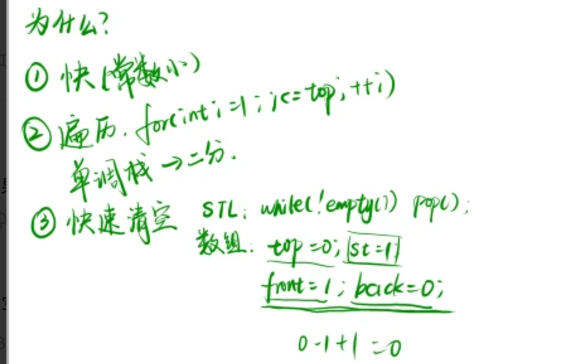 为什么?
① 快(常数小)
② 遍历. for(int i=1; i<=top; ++i)
单调栈→二分.
③ 快速清空 STL: while(!empty()) pop();
数组: top=0; st=1
front=1; back=0;
0-1+1=0